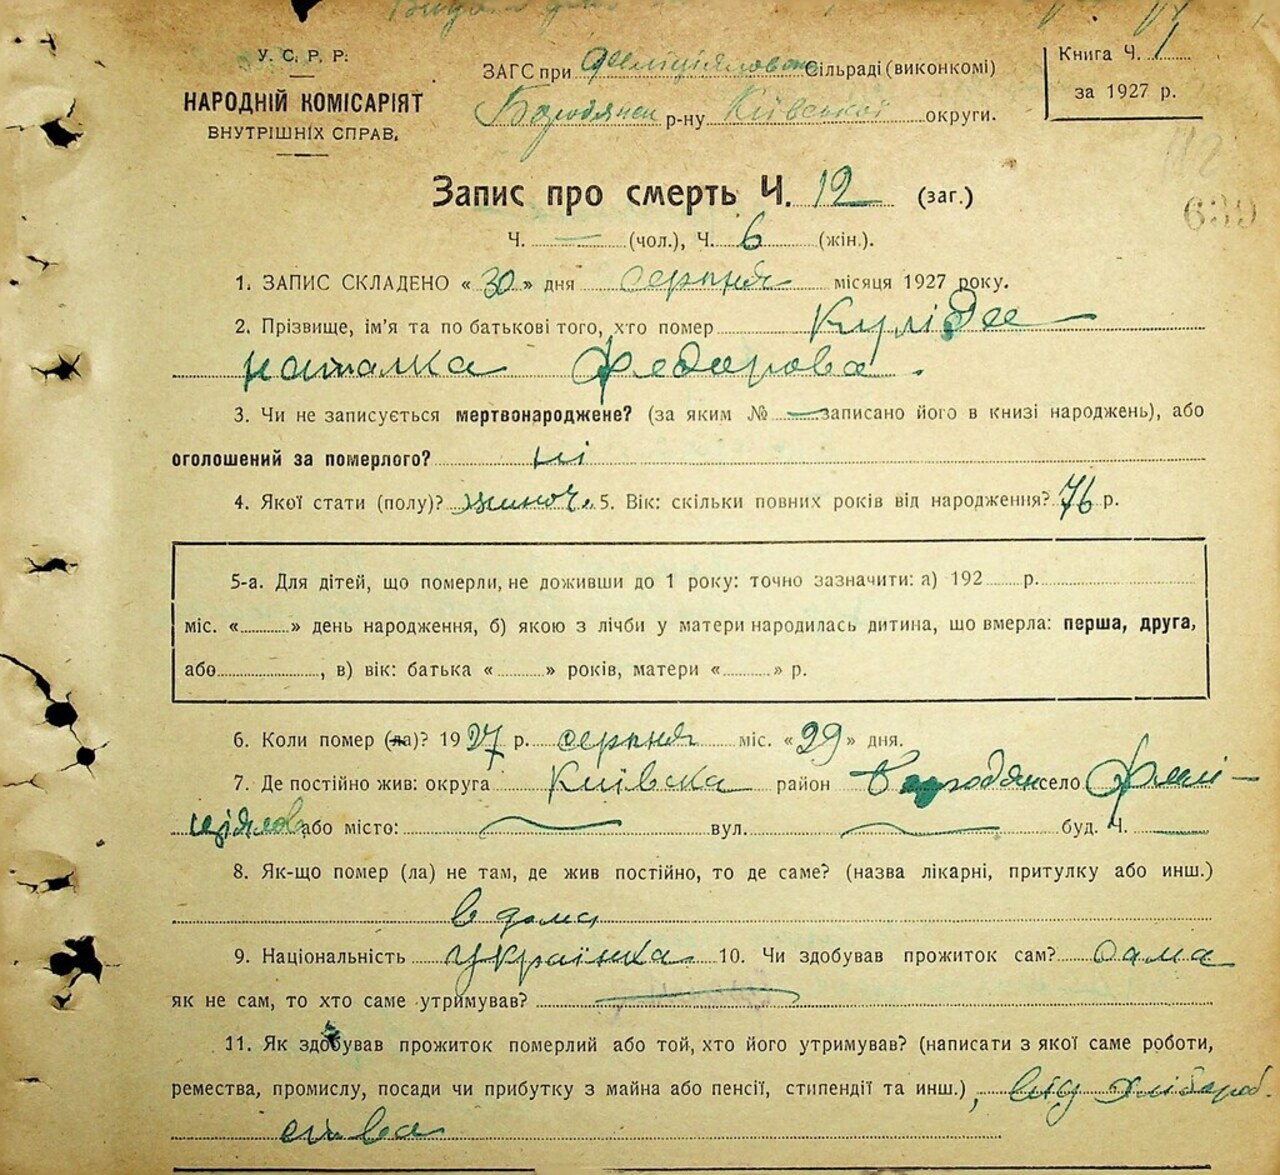 У. С. Р. Р.
НАРОДНІЙ КОМІСАРІЯТ
ВНУТРІШНІХ СПРАВ.
ЗАГС при Сільраді (виконкомі)
Бородянськ р-ну Київської округи.
Книга Ч. 1
за 1927 р.
639
Запис про смерть Ч. 12 (заг.)
Ч. — (чол.), Ч. 6 (жін.).
1. ЗАПИС СКЛАДЕНО « 30 » дня серпня місяця 1927 року.
2. Прізвище, ім'я та по батькові того, хто помер
Наталка Федорова.
3. Чи не записується мертвонароджене? (за яким № — записано його в книзі народжень), або
оголошений за померлого? ні
4. Якої стати (полу)? жиноч. 5. Вік: скільки повних років від народження? 76 р.
5-а. Для дітей, що померли, не доживши до 1 року: точно зазначити: а) 192 р.
міс. « » день народження, б) якою з лічби у матери народилась дитина, що вмерла: перша, друга,
або , в) вік: батька « » років, матери « » р.
6. Коли помер (ла)? 1927 р. серпня міс. «29» дня.
7. Де постійно жив: округа Київска район Бородян село
або місто: — вул. — буд. Ч. —
8. Як-що помер (ла) не там, де жив постійно, то де саме? (назва лікарні, притулку або инш.)
в дома
9. Національність Українка 10. Чи здобував прожиток сам? сама
як не сам, то хто саме утримував? —
11. Як здобував прожиток померлий або той, хто його утримував? (написати з якої саме роботи,
ремества, промислу, посади чи прибутку з майна або пенсії, стипендії та инш.) від хлібороб
ства